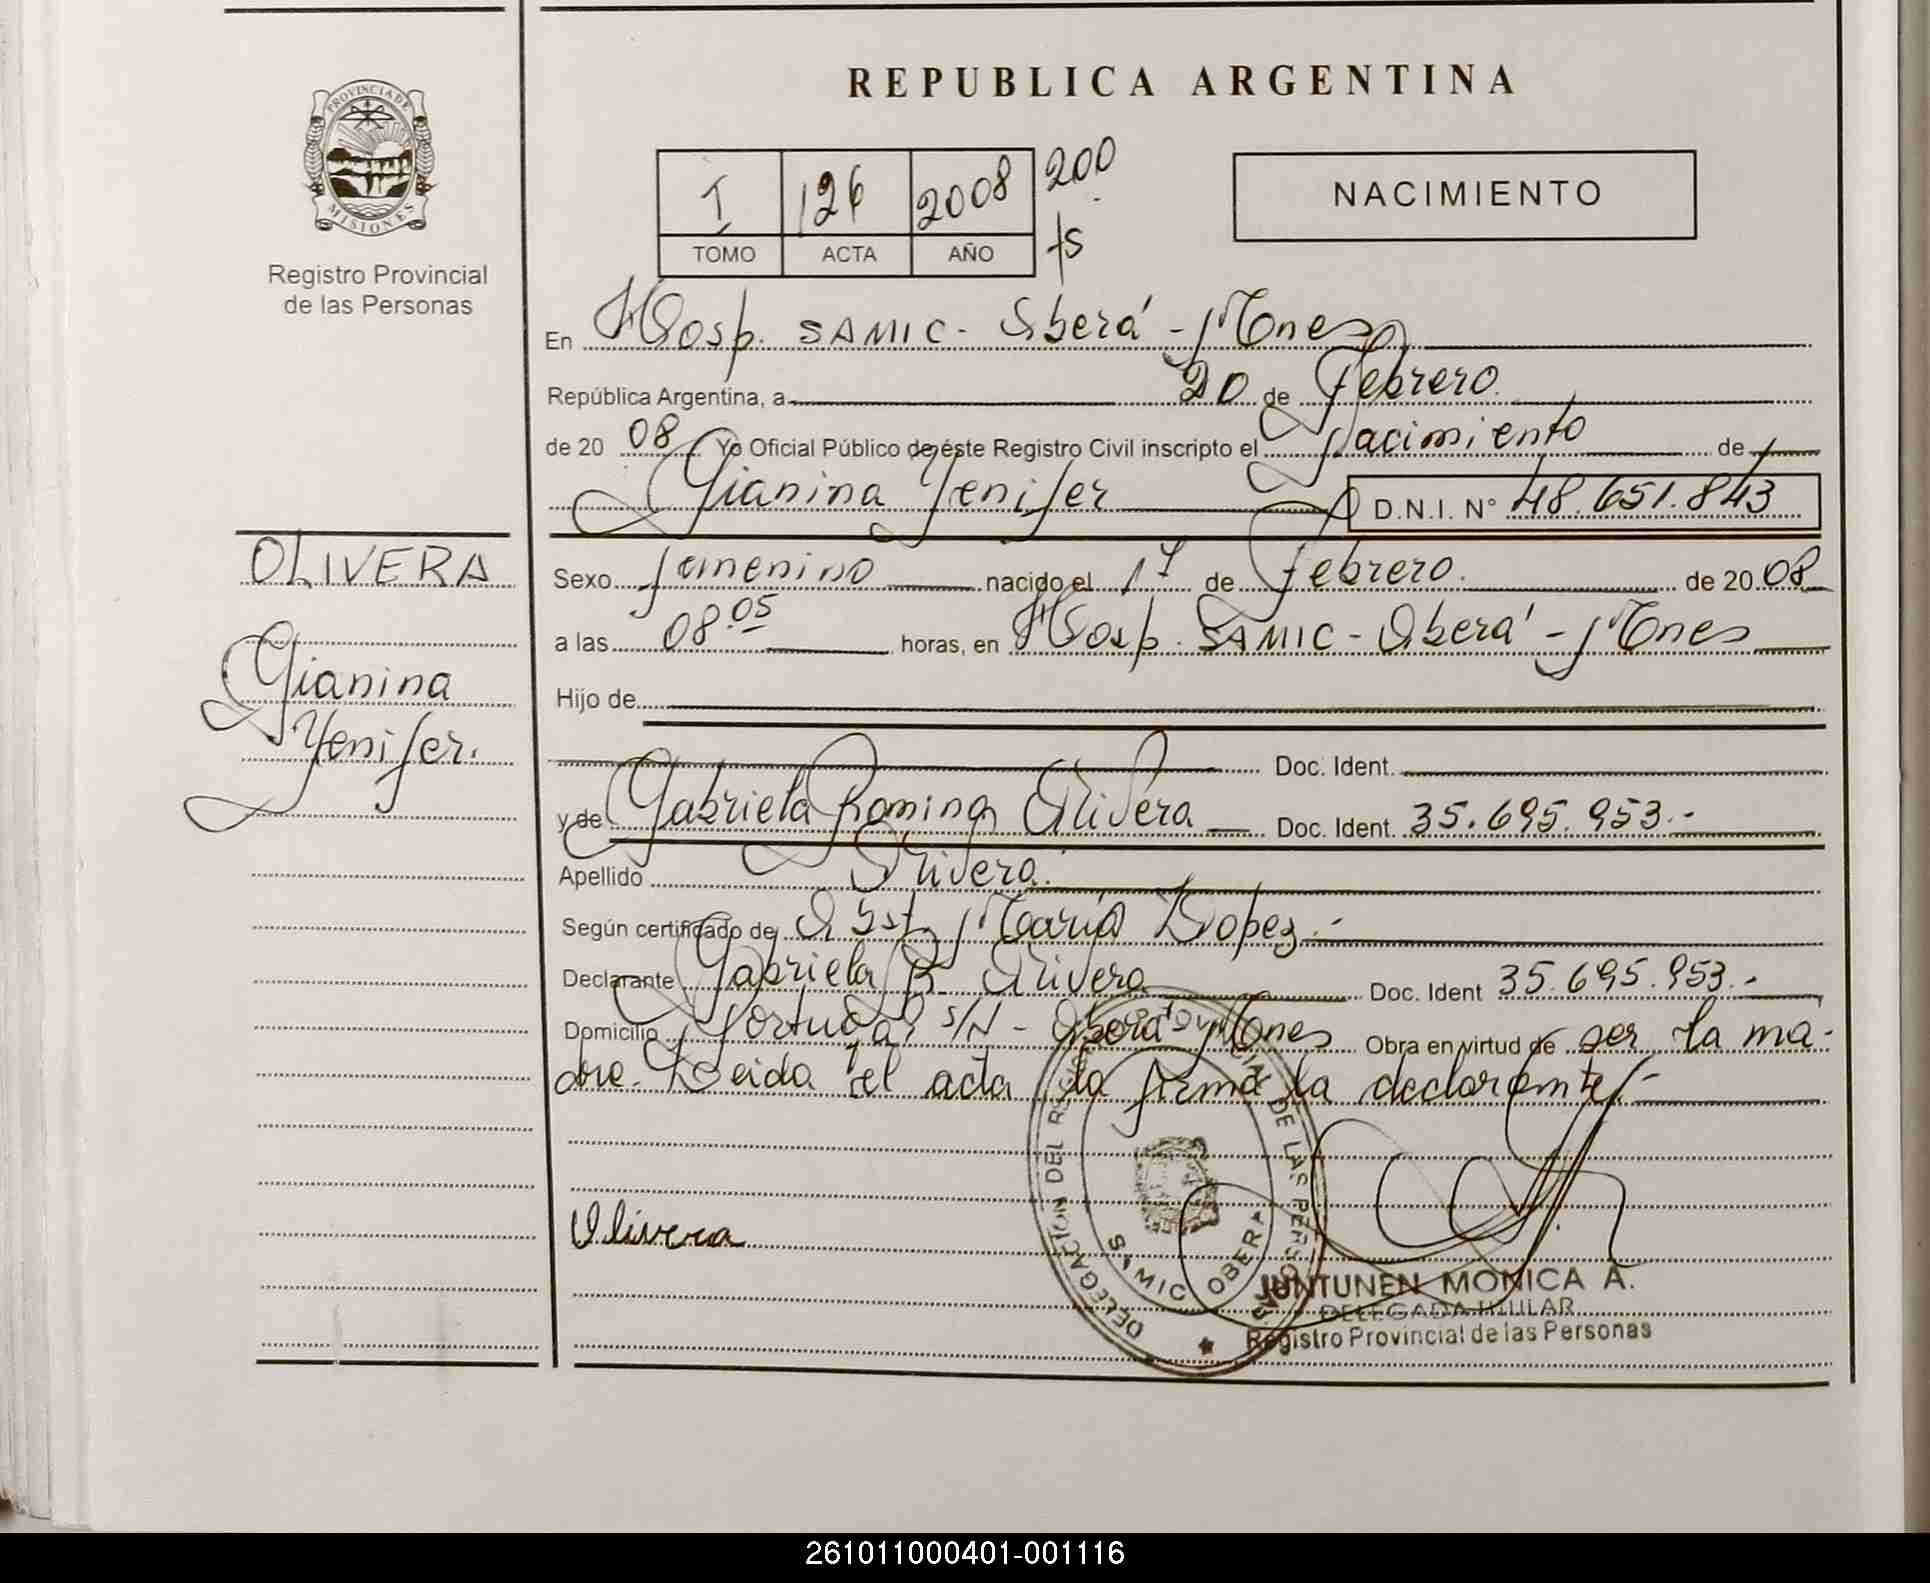 REPUBLICA ARGENTINA
PROVINCIA DE
MISIONES
Registro Provincial
de las Personas
I 126 2008 200
TOMO ACTA AÑO fs
NACIMIENTO
En Hosp. SAMIC - Oberá - Mnes
República Argentina, a 20 de Febrero.
de 20 08 Yo Oficial Público de éste Registro Civil inscripto el Nacimiento de
Gianina Yenifer D.N.I. N° 48.651.843
OLIVERA
Gianina
Yenifer.
Sexo femenino nacido el 17 de Febrero. de 20 08
a las 08.05 horas, en Hosp. SAMIC - Oberá - Mnes
Hijo de
Doc. Ident.
y de Gabriela Romina Olivera Doc. Ident. 35.695.953.-
Apellido Olivera.
Según certificado de Obst. María Lopez.-
Declarante Gabriela R. Olivera Doc. Ident 35.695.953.-
Domicilio Portugal S/N - Oberá Mnes Obra en virtud de ser la ma-
dre. Leida el acta la firma la declarante.-
Olivera
DELEGACION DEL REGISTRO PROVINCIAL DE LAS PERSONAS
SAMIC OBERA
JUNTUNEN MONICA A.
DELEGADA TITULAR
Registro Provincial de las Personas
261011000401-001116